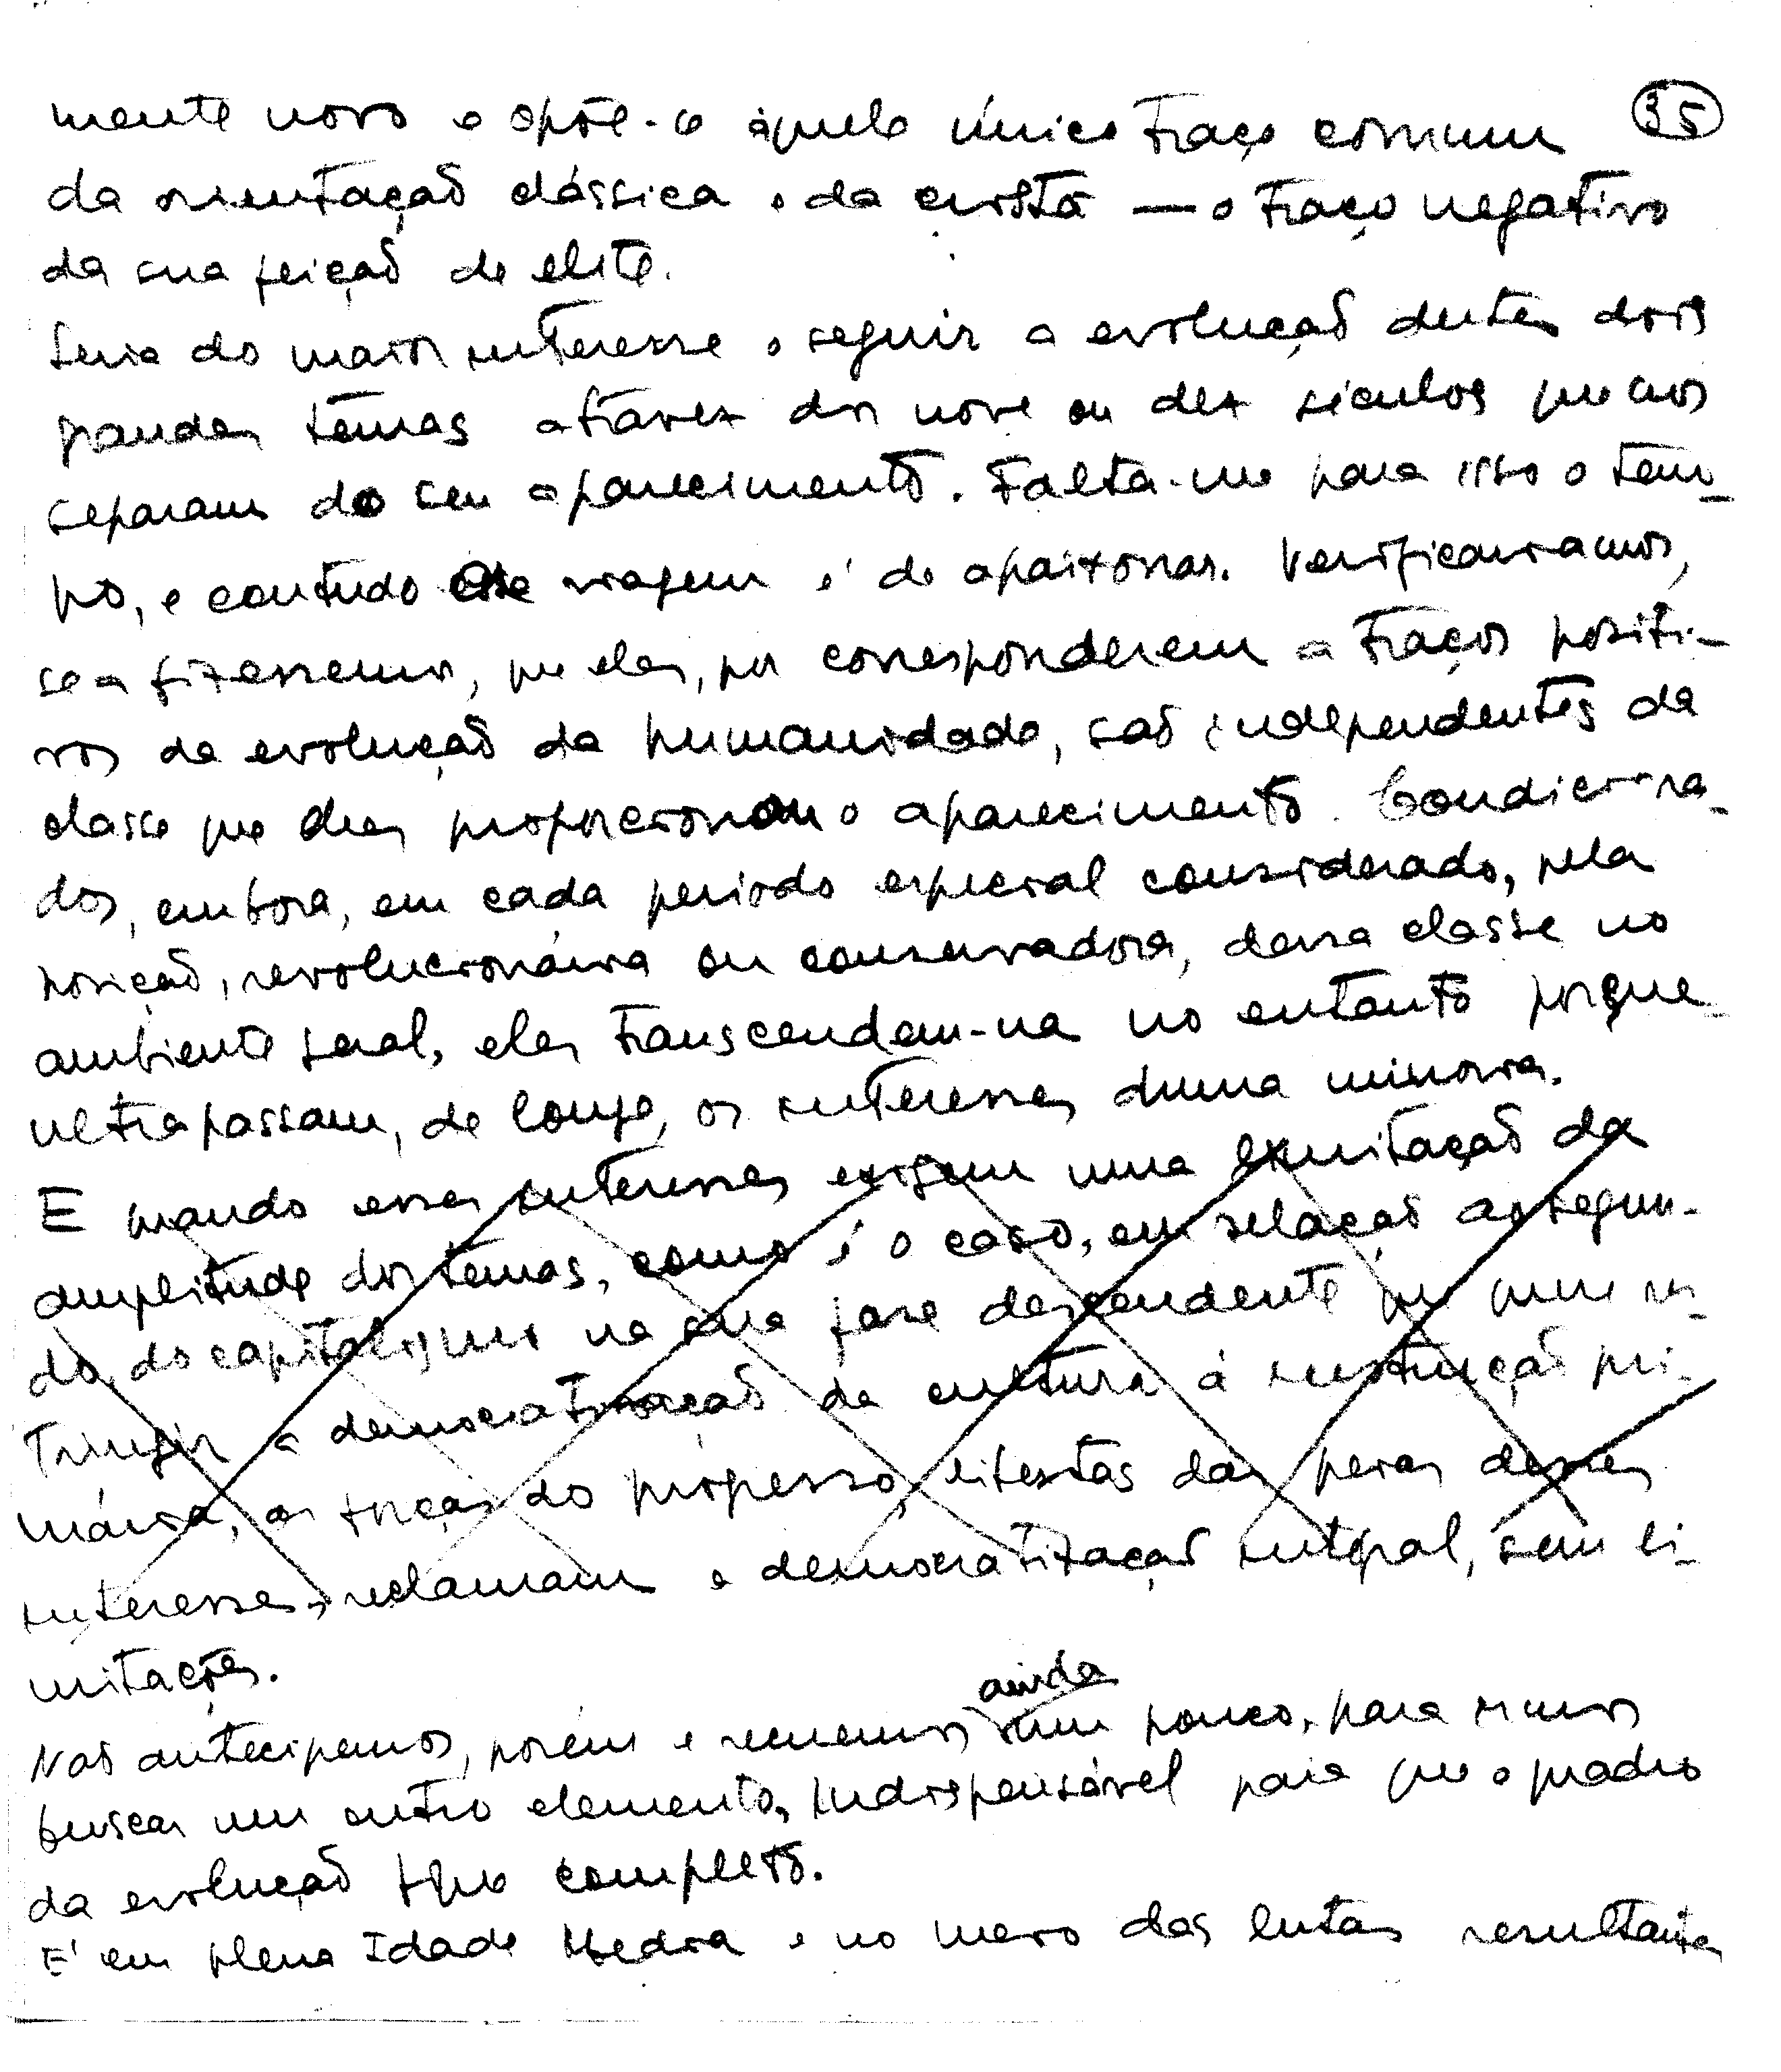 35
mente novo e opõe-se àquele único traço comum
da orientação clássica e da cristã — o traço negativo
da sua feição de elite.
Seria do maior interesse o seguir a evolução destes dois
grandes temas atravez dos nove ou dez séculos que nos
separam do seu aparecimento. Falta-me para isso o tem-
po, e contudo essa viagem é de apaixonar. Verificariamos,
se a fizessemos, que eles, por corresponderem a traços positi-
vos da evolução da humanidade, são independentes da
classe que deles proporcionou o aparecimento. Condiciona-
dos, embora, em cada periodo especial considerado, pela
posição, revolucionária ou conservadora, dessa classe no
ambiente geral, eles transcendem-na no entanto porque
ultrapassam, de longe, os interesses duma minoria.
E quando esses interesses exigem uma limitação da
amplitude dos temas, como é o caso, em relação ao segun-
do, do capitalismo na sua fase descendente que quere res-
tringir a democratização da cultura à instrução pri-
mária, as forças do progresso, libertas das peias desses
interesses, reclamam a democratização integral, sem li-
mitações.
Não antecipemos, porém e recuemos ainda um pouco, para irmos
buscar um outro elemento, indispensável para que o quadro
da evolução fique completo.
É em plena Idade Media e no meio das lutas resultantes